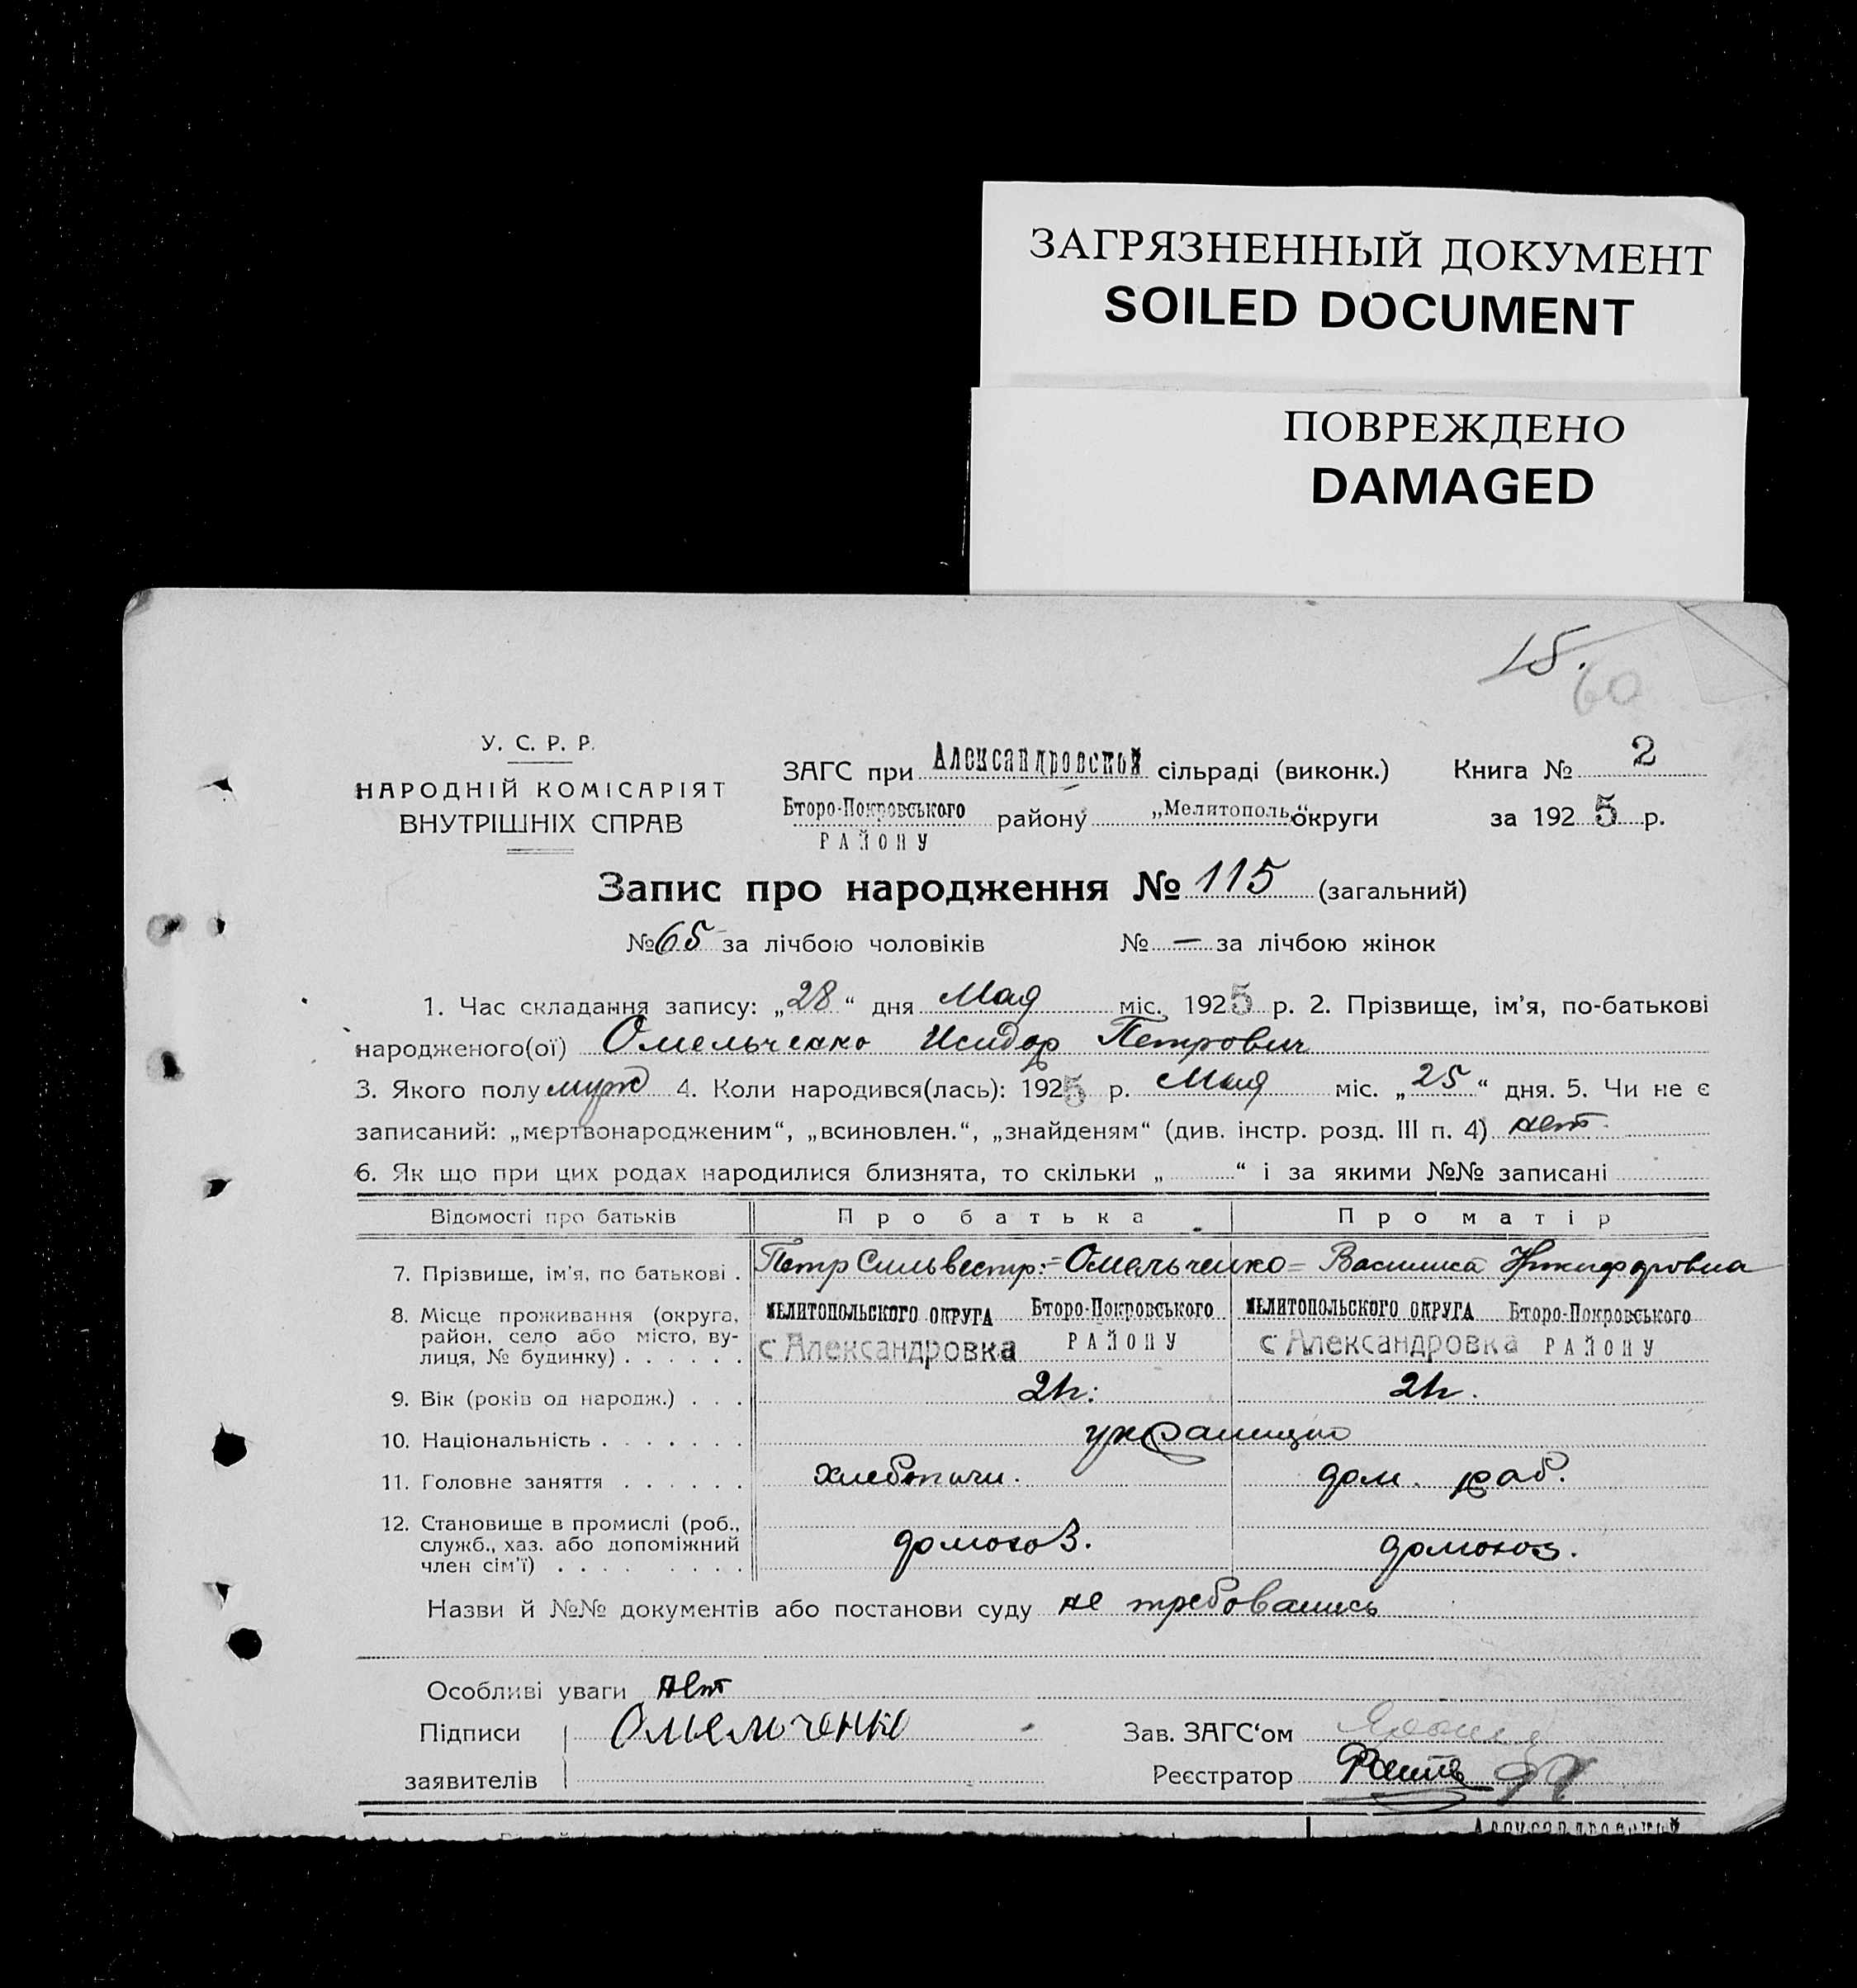 ЗАГРЯЗНЕННЫЙ ДОКУМЕНТ
SOILED DOCUMENT
ПОВРЕЖДЕНО
DAMAGED
15.
60
У. С. Р. Р.
НАРОДНІЙ КОМІСАРІЯТ
ВНУТРІШНІХ СПРАВ
ЗАГС при Александровской сільраді (виконк.) Книга № 2
Второ-Покровського району „Мелитополь" округи за 1925 р.
РАЙОНУ
Запис про народження № 115 (загальний)
№ 65 за лічбою чоловіків № — за лічбою жінок
1. Час складання запису: „28“ дня Мая міс. 1925 р. 2. Прізвище, ім'я, по-батькові
народженого(ої) Омельченко Исидор Петрович
3. Якого полу муж 4. Коли народився(лась): 1925 р. Мая міс. „25“ дня. 5. Чи не є
записаний: „мертвонародженим“, „всиновлен.“, „знайденям“ (див. інстр. розд. III п. 4) нет
6. Як що при цих родах народилися близнята, то скільки „ “ і за якими №№ записані
Відомості про батьків Про батька Про матір
7. Прізвище, ім'я, по батькові . Петр Сильвестр: = Омельченко = Василиса
8. Місце проживання (округа, район, село або місто, вулиця, № будинку) . . . . . .
МЕЛИТОПОЛЬСКОГО ОКРУГА Второ-Покровського МЕЛИТОПОЛЬСКОГО ОКРУГА Второ-Покровського
с Александровка РАЙОНУ с Александровка РАЙОНУ
9. Вік (років од народж.) . . .
10. Національність . . . . . . .
11. Головне заняття . . . . . . дом. раб.
12. Становище в промислі (роб.,
служб., хаз. або допоміжний домохоз. домохоз.
член сім'ї) . . . . . . . .
Назви й №№ документів або постанови суду не требовались
Особливі уваги нет
Підписи Омельченко Зав. ЗАГС‘ом
заявителів Реєстратор
Александровской